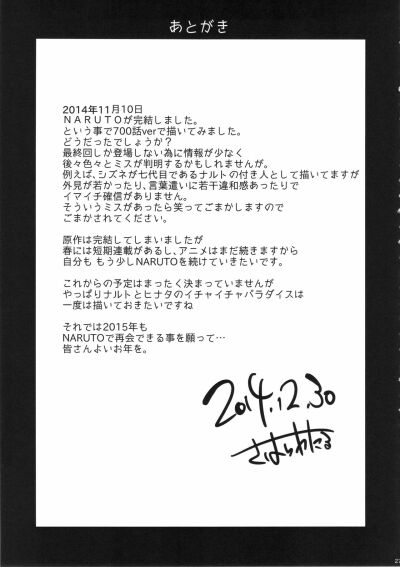 あとがき
2014年11月10日
NARUTOが完結しました。
という事で700話verで描いてみました。
どうだったでしょうか？
最終回しか登場しない為に情報が少なく
後々色々とミスが判明するかもしれませんが。
例えば、シズネが七代目であるナルトの付き人として描いてますが
外見が若かったり、言葉遣いに若干違和感あったりで
イマイチ確信がありません。
そういうミスがあったら笑ってごまかしますので
ごまかされてください。
原作は完結してしまいましたが
春には短期連載があるし、アニメはまだ続きますから
自分も もう少しNARUTOを続けていきたいです。
これからの予定はまったく決まっていませんが
やっぱりナルトとヒナタのイチャイチャパラダイスは
一度は描いておきたいですね
それでは2015年も
NARUTOで再会できる事を願って…
皆さんよいお年を。
2014.12.30
さはらわたる